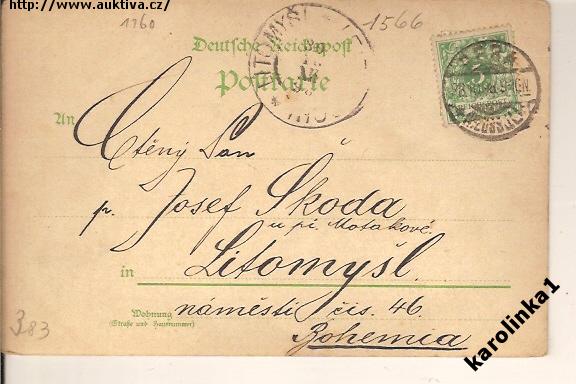 http://www.auktiva.cz/
1760
1566
Deutsche Reichspost
Postkarte
LITOMYŠL
5
An
Ctěný Pan
p. Josef Škoda
u pí. Motakové.
in
Litomyšl.
Wohnung
(Straße und Hausnummer)
náměstí čís. 46.
Bohemia
383
karolinka1